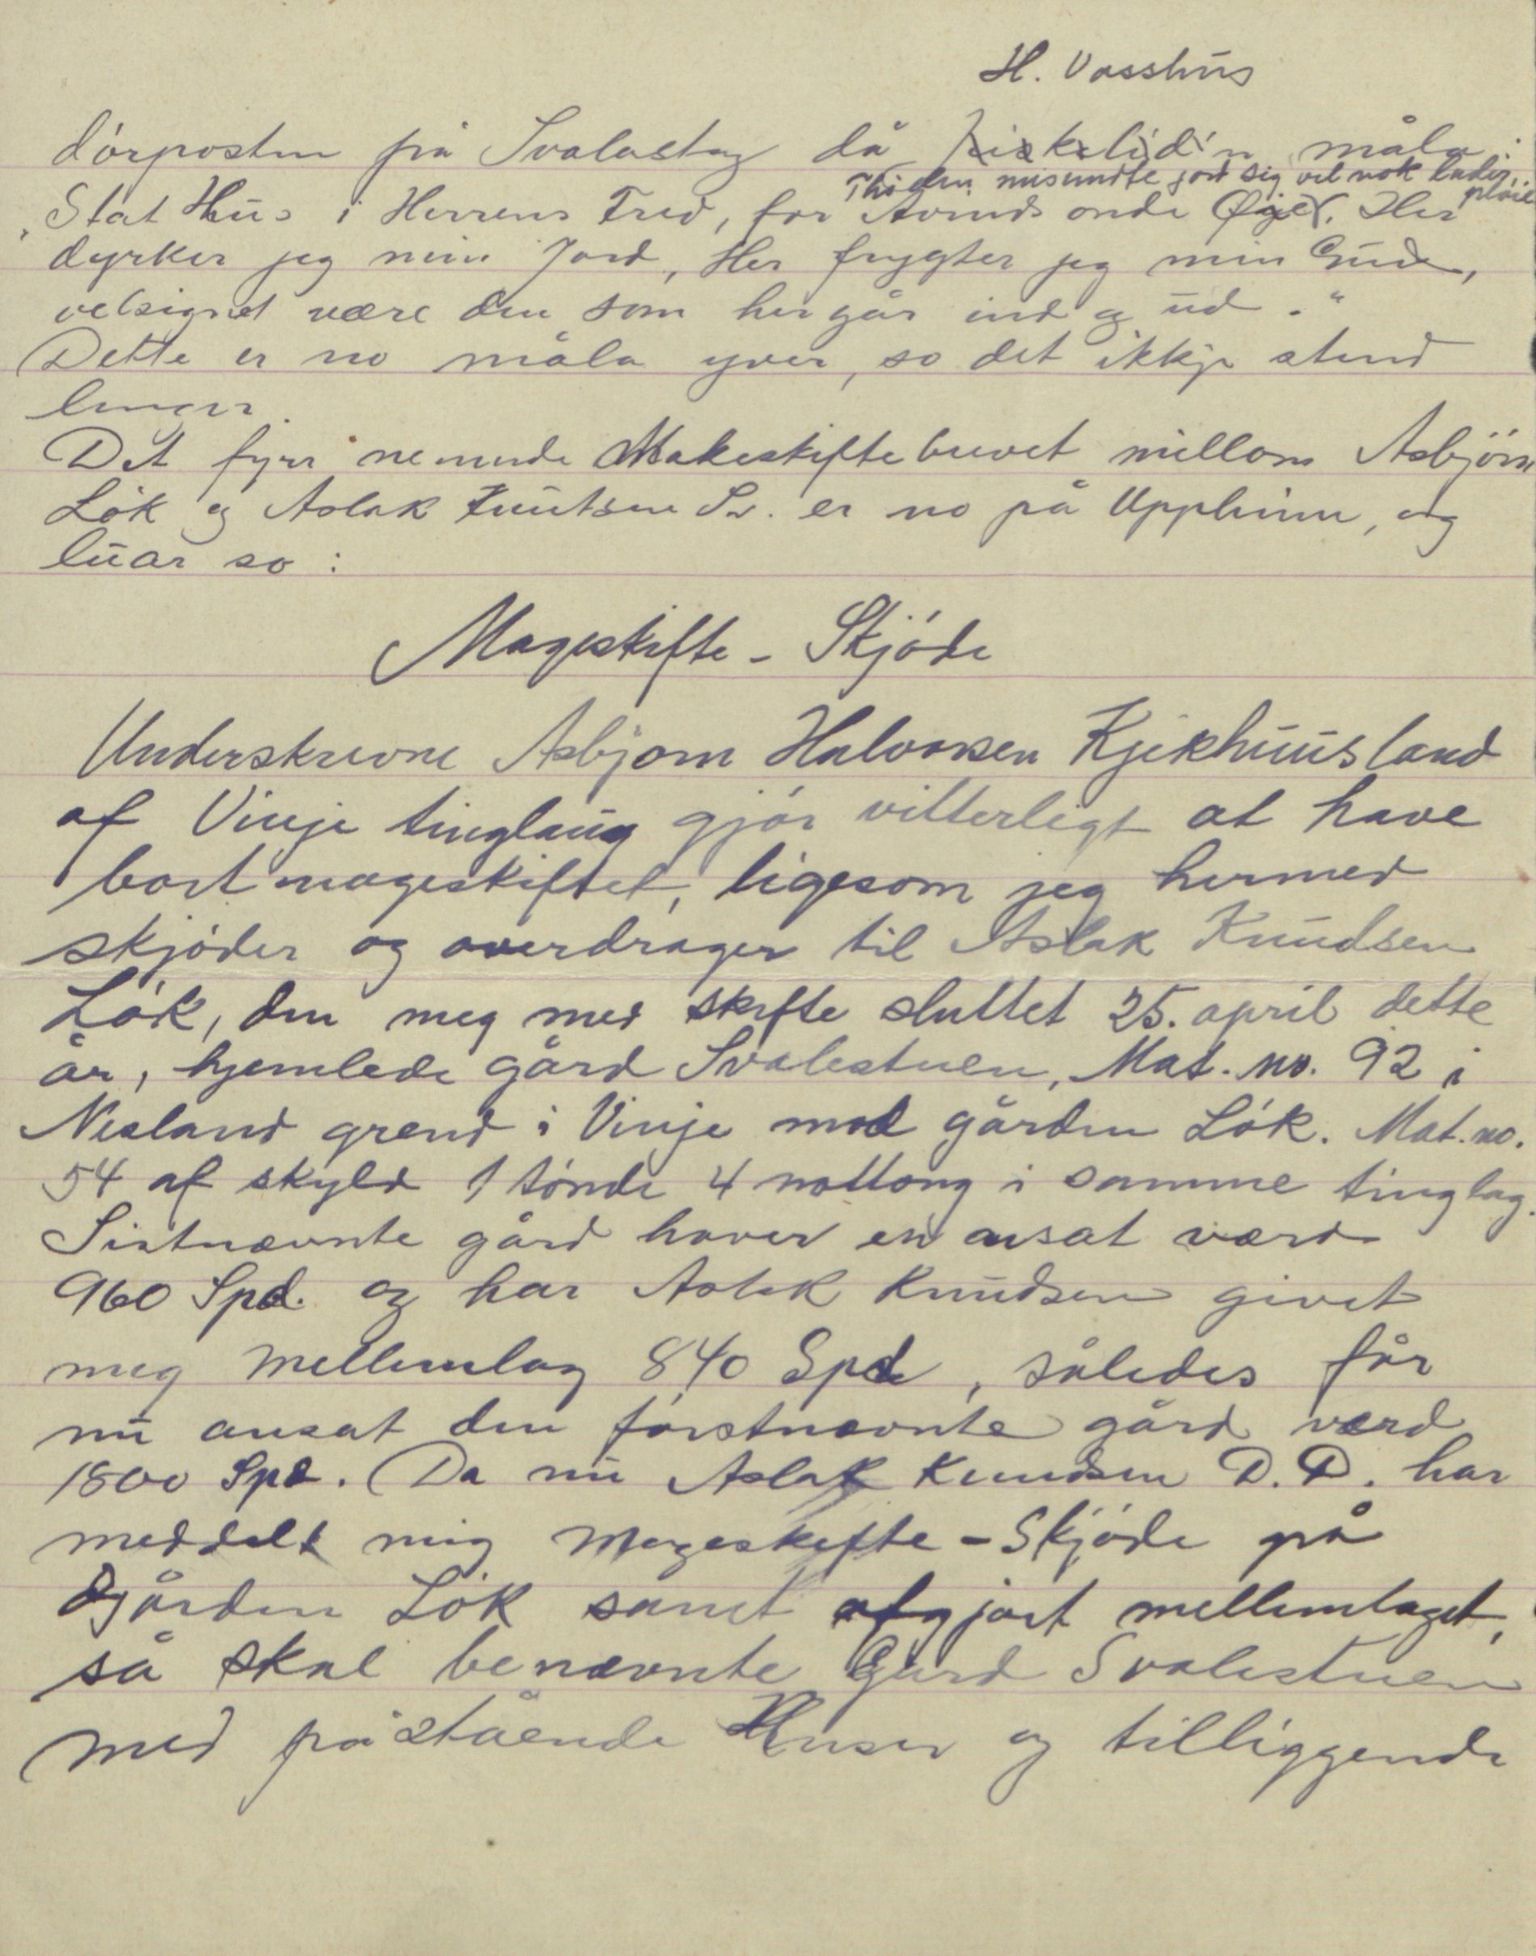 H. Vasshus
dörposten på Svalastog då Kiskelid'n måla:
Thi den misundte jord sig vel nok lader pløie
"Stat Hus i Herrens Fred, for Avinds onde Øje. Her
dyrker jeg min Jord, Her frygter jeg min Gud,
velsignet være den som her går ind og ud."
Dette er no måla yver, so det ikkje stend
lenger.
Det fyrr nemnde Makeskiftebrevet millom Asbjörn
Lök og Aslak Knutsen Sv. er no på Uppheim, og
luar so:
Mageskifte - Skjöde
Underskrevne Asbjørn Halvorsen Kjekhuusland
af Vinje tinglaug gjör vitterligt at have
bortmageskiftet, ligesom jeg hermed
skjöder og overdrager til Aslak Knudsen
Lök, den meg med skifte sluttet 25. april dette
år, hjemlede gård Svalestuen, Mat. no. 92 i
Nesland grend i Vinje mod gården Lök. Mat. no.
54 af skyld 1 tönde 4 nottong i samme tinglag.
Sistnævnte gård haver en ansat værd
960 Spd. og har Aslak Knudsen givet
meg mellemlag 840 Spd, således får
nu ansat den förstnævnte gård værd
1800 Spd. Da nu Aslak Knudsen D.D. har
meddelt mig Mageskifte-Skjöde på
gården Lök samt afgjört mellemlaget,
så skal benævnte Gård Svalestuen
med påstående Huser og tilliggende